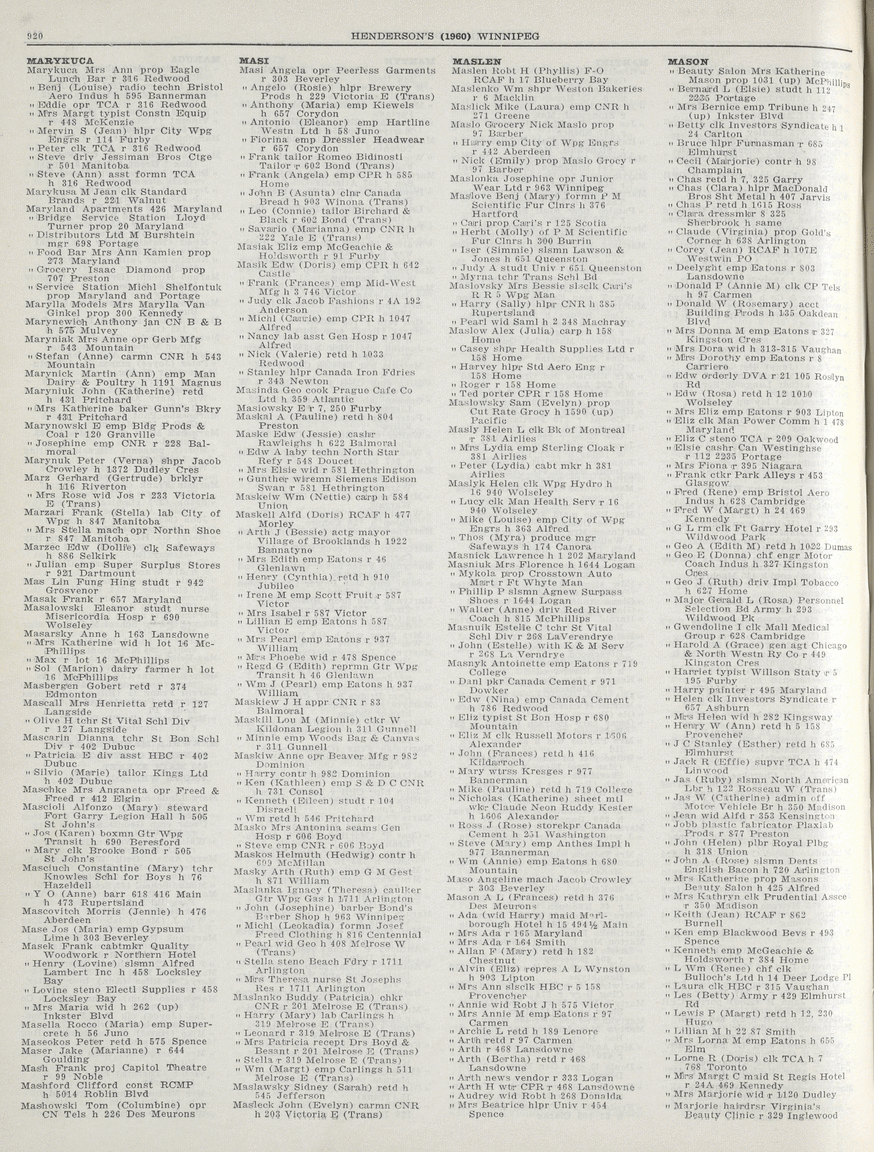 920
HENDERSON'S (1960) WINNIPEG
MARYKUCA
Marykuca Mrs Ann prop Eagle
Lunch Bar r 316 Redwood
" Benj (Louise) radio techn Bristol
Aero Indus h 595 Bannerman
" Eddie opr TCA r 316 Redwood
" Mrs Margt typist Constn Equip
r 448 McKenzie
" Mervin S (Jean) hlpr City Wpg
Engrs r 114 Furby
" Peter clk TCA r 316 Redwood
" Steve driv Jessiman Bros Ctge
r 501 Manitoba
" Steve (Ann) asst formn TCA
h 316 Redwood
Marykusa M Jean clk Standard
Brands r 221 Walnut
Maryland Apartments 426 Maryland
" Bridge Service Station Lloyd
Turner prop 20 Maryland
" Distributors Ltd M Burshtein
mgr 698 Portage
" Food Bar Mrs Ann Kamien prop
273 Maryland
" Grocery Isaac Diamond prop
707 Preston
" Service Station Michl Shelfontuk
prop Maryland and Portage
Marylla Models Mrs Marylla Van
Ginkel prop 300 Kennedy
Marynewich Anthony jan CN B & B
h 575 Mulvey
Maryniak Mrs Anne opr Gerb Mfg
r 543 Mountain
" Stefan (Anne) carmn CNR h 543
Mountain
Marynick Martin (Ann) emp Man
Dairy & Poultry h 1191 Magnus
Maryniuk John (Katherine) retd
h 431 Pritchard
" Mrs Katherine baker Gunn's Bkry
r 431 Pritchard
Marynowski E emp Bldg Prods &
Coal r 120 Granville
" Josephine emp CNR r 228 Bal-
moral
Marynuk Peter (Verna) shpr Jacob
Crowley h 1372 Dudley Cres
Marz Gerhard (Gertrude) brklyr
h 116 Riverton
" Mrs Rose wid Jos r 233 Victoria
E (Trans)
Marzari Frank (Stella) lab City of
Wpg h 847 Manitoba
" Mrs Stella mach opr Northn Shoe
r 847 Manitoba
Marzec Edw (Dollie) clk Safeways
h 886 Selkirk
" Julian emp Super Surplus Stores
r 921 Dartmount
Mas Lin Fung Hing studt r 942
Grosvenor
Masak Frank r 657 Maryland
Masalowski Eleanor studt nurse
Misericordia Hosp r 690
Wolseley
Masarsky Anne h 163 Lansdowne
" Mrs Katherine wid h lot 16 Mc-
Phillips
" Max r lot 16 McPhillips
" Sol (Marion) dairy farmer h lot
16 McPhillips
Masbergen Gobert retd r 374
Edmonton
Mascall Mrs Henrietta retd r 127
Langside
" Olive H tchr St Vital Schl Div
r 127 Langside
Mascarin Dianna tchr St Bon Schl
Div r 402 Dubuc
" Patricia E div asst HBC r 402
Dubuc
" Silvio (Marie) tailor Kings Ltd
h 402 Dubuc
Maschke Mrs Anganeta opr Freed &
Freed r 412 Elgin
Mascioli Alfonzo (Mary) steward
Fort Garry Legion Hall h 505
St John's
" Jos (Karen) boxmn Gtr Wpg
Transit h 690 Beresford
" Mary clk Brooke Bond r 505
St John's
Masciuch Constantine (Mary) tchr
Knowles Schl for Boys h 76
Hazeldell
" Y O (Anne) barr 618 416 Main
h 473 Rupertsland
Mascovitch Morris (Jennie) h 476
Aberdeen
Mase Jos (Maria) emp Gypsum
Lime h 303 Beverley
Masek Frank cabtmkr Quality
Woodwork r Northern Hotel
" Henry (Lovine) slsmn Alfred
Lambert Inc h 458 Locksley
Bay
" Lovine steno Electl Supplies r 458
Locksley Bay
" Mrs Maria wid h 262 (up)
Inkster Blvd
Masella Rocco (Maria) emp Super-
crete h 56 Juno
Maseokos Peter retd h 575 Spence
Maser Jake (Marianne) r 644
Goulding
Mash Frank proj Capitol Theatre
r 99 Noble
Mashford Clifford const RCMP
h 5014 Roblin Blvd
Mashowski Tom (Columbine) opr
CN Tels h 226 Des Meurons
MASI
Masi Angela opr Peerless Garments
r 303 Beverley
" Angelo (Rosie) hlpr Brewery
Prods h 229 Victoria E (Trans)
" Anthony (Maria) emp Kiewels
h 657 Corydon
" Antonio (Eleanor) emp Hartline
Westn Ltd h 58 Juno
" Fiorina emp Dressler Headwear
r 657 Corydon
" Frank tailor Romeo Bidinosti
Tailor r 602 Bond (Trans)
" Frank (Angela) emp CPR h 585
Home
" John B (Asunta) clnr Canada
Bread h 903 Winona (Trans)
" Leo (Connie) tailor Birchard &
Black r 602 Bond (Trans)
" Savario (Marianna) emp CNR h
222 Yale E (Trans)
Masiak Eliz emp McGeachie &
Holdsworth r 91 Furby
Masik Edw (Doris) emp CPR h 642
Castle
" Frank (Frances) emp Mid-West
Mfg h 3 746 Victor
" Judy clk Jacob Fashions r 4A 192
Anderson
" Michl (Carrie) emp CPR h 1047
Alfred
" Nancy lab asst Gen Hosp r 1047
Alfred
" Nick (Valerie) retd h 1033
Redwood
" Stanley hlpr Canada Iron Fdries
r 343 Newton
Masinda Geo cook Prague Cafe Co
Ltd h 359 Atlantic
Masiowsky E r 7, 250 Furby
Maskal A (Pauline) retd h 804
Preston
Maske Edw (Jessie) cashr
Rawleighs h 622 Balmoral
" Edw A laby techn North Star
Refy r 548 Doucet
" Mrs Elsie wid r 581 Hethrington
" Gunther wiremn Siemens Edison
Swan r 581 Hethrington
Maskeiw Wm (Nettie) carp h 584
Union
Maskell Alfd (Doris) RCAF h 477
Morley
" Arth J (Bessie) actg mayor
Village of Brooklands h 1922
Bannatyne
" Mrs Edith emp Eatons r 46
Glenlawn
" Henry (Cynthia) retd h 910
Jubilee
" Irene M emp Scott Fruit r 587
Victor
" Mrs Isabel r 587 Victor
" Lillian E emp Eatons h 587
Victor
" Mrs Pearl emp Eatons r 937
William
" Mrs Phoebe wid r 478 Spence
" Regd G (Edith) reprmn Gtr Wpg
Transit h 46 Glenlawn
" Wm J (Pearl) emp Eatons h 937
William
Maskiew J H appr CNR r 83
Balmoral
Maskill Lou M (Minnie) ctkr W
Kildonan Legion h 311 Gunnell
" Minnie emp Woods Bag & Canvas
r 311 Gunnell
Maskiw Anne opr Beaver Mfg r 982
Dominion
" Harry contr h 982 Dominion
" Ken (Kathleen) emp S & D C CNR
h 731 Consol
" Kenneth (Eileen) studt r 104
Disraeli
" Wm retd h 546 Pritchard
Masko Mrs Antonina seams Gen
Hosp r 606 Boyd
" Steve emp CNR r 606 Boyd
Maskos Helmuth (Hedwig) contr h
699 McMillan
Masky Arth (Ruth) emp G M Gest
h 871 William
Maslanka Ignacy (Theresa) caulker
Gtr Wpg Gas h 1711 Arlington
" John (Josephine) barber Bond's
Barber Shop h 963 Winnipeg
" Michl (Leokadia) formn Josef
Freed Clothing h 816 Centennial
" Pearl wid Geo h 408 Melrose W
(Trans)
" Stella steno Beach Fdry r 1711
Arlington
" Mrs Theresa nurse St Josephs
Res r 1711 Arlington
Maslanko Buddy (Patricia) chkr
CNR r 201 Melrose E (Trans)
" Harry (Mary) lab Carlings h
319 Melrose E (Trans)
" Leonard r 319 Melrose E (Trans)
" Mrs Patricia recept Drs Boyd &
Besant r 201 Melrose E (Trans)
" Stella r 319 Melrose E (Trans)
" Wm (Margt) emp Carlings h 511
Melrose E (Trans)
Maslawsky Sidney (Sarah) retd h
545 Jefferson
Masleck John (Evelyn) carmn CNR
h 203 Victoria E (Trans)
MASLEN
Maslen Robt H (Phyllis) F-O
RCAF h 17 Blueberry Bay
Maslenko Wm shpr Weston Bakeries
r 6 Macklin
Maslick Mike (Laura) emp CNR h
271 Greene
Maslo Grocery Nick Maslo prop
97 Barber
" Harry emp City of Wpg Engrs
r 442 Aberdeen
" Nick (Emily) prop Maslo Grocy r
97 Barber
Maslonka Josephine opr Junior
Wear Ltd r 963 Winnipeg
Maslove Benj (Mary) formn P M
Scientific Fur Clnrs h 376
Hartford
" Cari prop Cari's r 125 Scotia
" Herbt (Molly) of P M Scientific
Fur Clnrs h 300 Burrin
" Iser (Simmie) slsmn Lawson &
Jones h 651 Queenston
" Judy A studt Univ r 651 Queenston
" Myrna tchr Trans Schl Bd
Maslovsky Mrs Bessie slsclk Cari's
R R 5 Wpg Man
" Harry (Sally) hlpr CNR h 385
Rupertsland
" Pearl wid Saml h 2 348 Machray
Maslow Alex (Julia) carp h 158
Home
" Casey shpr Health Supplies Ltd r
158 Home
" Harvey hlpr Std Aero Eng r
158 Home
" Roger r 158 Home
" Ted porter CPR r 158 Home
Maslowsky Sam (Evelyn) prop
Cut Rate Grocy h 1590 (up)
Pacific
Masly Helen L clk Bk of Montreal
r 381 Airlies
" Mrs Lydia emp Sterling Cloak r
381 Airlies
" Peter (Lydia) cabt mkr h 381
Airlies
Maslyk Helen clk Wpg Hydro h
16 940 Wolseley
" Lucy clk Man Health Serv r 16
940 Wolseley
" Mike (Louise) emp City of Wpg
Engrs h 363 Alfred
" Thos (Myra) produce mgr
Safeways h 174 Canora
Masnick Lawrence h 1 202 Maryland
Masniuk Mrs Florence h 1644 Logan
" Mykola prop Crosstown Auto
Mart r Ft Whyte Man
" Phillip P slsmn Agnew Surpass
Shoes r 1644 Logan
" Walter (Anne) driv Red River
Coach h 815 McPhillips
Masnuik Estelle C tchr St Vital
Schl Div r 268 LaVerendrye
" John (Estelle) with K & M Serv
r 268 La Verndrye
Masnyk Antoinette emp Eatons r 719
College
" Danl pkr Canada Cement r 971
Dowker
" Edw (Nina) emp Canada Cement
h 786 Redwood
" Eliz typist St Bon Hosp r 680
Mountain
" Eliz M clk Russell Motors r 1606
Alexander
" John (Frances) retd h 416
Kildarroch
" Mary wtrss Kresges r 977
Bannerman
" Mike (Pauline) retd h 719 College
" Nicholas (Katherine) sheet mtl
wkr Claude Neon Ruddy Kester
h 1606 Alexander
" Ross J (Rose) storekpr Canada
Cement h 251 Washington
" Steve (Mary) emp Anthes Impl h
977 Bannerman
" Wm (Annie) emp Eatons h 680
Mountain
Maso Angeline mach Jacob Crowley
r 303 Beverley
Mason A L (Frances) retd h 376
Des Meurons
" Ada (wid Harry) maid Marl-
borough Hotel h 15 494½ Main
" Mrs Ada r 165 Maryland
" Mrs Ada r 164 Smith
" Allan F (Mary) retd h 182
Chestnut
" Alvin (Eliz) repres A L Wynston
h 903 Lipton
" Mrs Ann slsclk HBC r 5 158
Provencher
" Annie wid Robt J h 575 Victor
" Mrs Annie M emp Eatons r 97
Carmen
" Archie L retd h 189 Lenore
" Arth retd r 97 Carmen
" Arth r 468 Lansdowne
" Arth (Bertha) retd r 468
Lansdowne
" Arth news vendor r 333 Logan
" Arth H wtr CPR r 468 Lansdowne
" Audrey wid Robt h 268 Donalda
" Mrs Beatrice hlpr Univ r 454
Spence
MASON
" Beauty Salon Mrs Katherine
Mason prop 1031 (up) McPhillips
" Bernard L (Elsie) studt h 112
2235 Portage
" Mrs Bernice emp Tribune h 247
(up) Inkster Blvd
" Betty clk Investors Syndicate h 1
24 Carlton
" Bruce hlpr Furnasman r 685
Elmhurst
" Cecil (Marjorie) contr h 98
Champlain
" Chas retd h 7, 325 Garry
" Chas (Clara) hlpr MacDonald
Bros Sht Metal h 407 Jarvis
" Chas P retd h 1615 Ross
" Clara dressmkr 8 325
Sherbrook h same
" Claude (Virginia) prop Gold's
Corner h 638 Arlington
" Corey (Jean) RCAF h 107E
Westwin PO
" Deelyght emp Eatons r 803
Lansdowne
" Donald P (Annie M) clk CP Tels
h 97 Carmen
" Donald W (Rosemary) acct
Building Prods h 135 Oakdean
Blvd
" Mrs Donna M emp Eatons r 327
Kingston Cres
" Mrs Dora wid h 313-315 Vaughan
" Mrs Dorothy emp Eatons r 8
Carriero
" Edw orderly DVA r 21 105 Roslyn
Rd
" Edw (Rosa) retd h 12 1010
Wolseley
" Mrs Eliz emp Eatons r 903 Lipton
" Eliz clk Man Power Comm h 1 478
Maryland
" Eliz C steno TCA r 209 Oakwood
" Elsie cashr Can Westinghse
r 112 2235 Portage
" Mrs Fiona r 395 Niagara
" Frank ctkr Park Alleys r 453
Glasgow
" Fred (Rene) emp Bristol Aero
Indus h 628 Cambridge
" Fred W (Margt) h 24 469
Kennedy
" G L rm clk Ft Garry Hotel r 293
Wildwood Park
" Geo A (Edith M) retd h 1022 Dumas
" Geo E (Donna) chf engr Motor
Coach Indus h 327 Kingston
Cres
" Geo J (Ruth) driv Impl Tobacco
h 627 Home
" Major Gerald L (Rosa) Personnel
Selection Bd Army h 293
Wildwood Pk
" Gwendoline I clk Mall Medical
Group r 628 Cambridge
" Harold A (Grace) gen agt Chicago
& North Westn Ry Co r 449
Kingston Cres
" Harriet typist Willson Staty r 5
195 Furby
" Harry painter r 495 Maryland
" Helen clk Investors Syndicate r
657 Ashburn
" Mrs Helen wid h 282 Kingsway
" Henry W (Ann) retd h 5 158
Provencher
" J C Stanley (Esther) retd h 685
Elmhurst
" Jack R (Effie) supvr TCA h 474
Linwood
" Jas (Ruby) slsmn North American
Lbr h 122 Rosseau W (Trans)
" Jas W (Catherine) admin off
Motor Vehicle Br h 350 Madison
" Jean wid Alfd r 353 Kensington
" Jobb plastic fabricator Plaxlab
Prods r 877 Preston
" John (Helen) plbr Royal Plbg
h 318 Union
" John A (Rose) slsmn Dents
English Bacon h 720 Arlington
" Mrs Katherine prop Masons
Beauty Salon h 425 Alfred
" Mrs Kathryn clk Prudential Assce
r 350 Madison
" Keith (Jean) RCAF r 862
Burnell
" Ken emp Blackwood Bevs r 493
Spence
" Kenneth emp McGeachie &
Holdsworth r 384 Home
" L Wm (Renee) chf clk
Bulloch's Ltd h 14 Deer Lodge Pl
" Laura clk HBC r 315 Vaughan
" Les (Betty) Army r 429 Elmhurst
Rd
" Lewis P (Margt) retd h 12, 230
Hugo
" Lillian M h 22 87 Smith
" Mrs Lorna M emp Eatons h 655
Elm
" Lorne R (Doris) clk TCA h 7
768 Toronto
" Mrs Margt C maid St Regis Hotel
r 24A 469 Kennedy
" Mrs Marjorie wid r 1120 Dudley
" Marjorie hairdrsr Virginia's
Beauty Clinic r 329 Inglewood